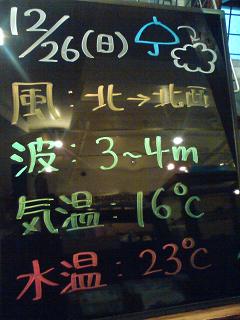 12/26(日)
風:北→北西
波:3~4m
気温:16℃
水温:23℃